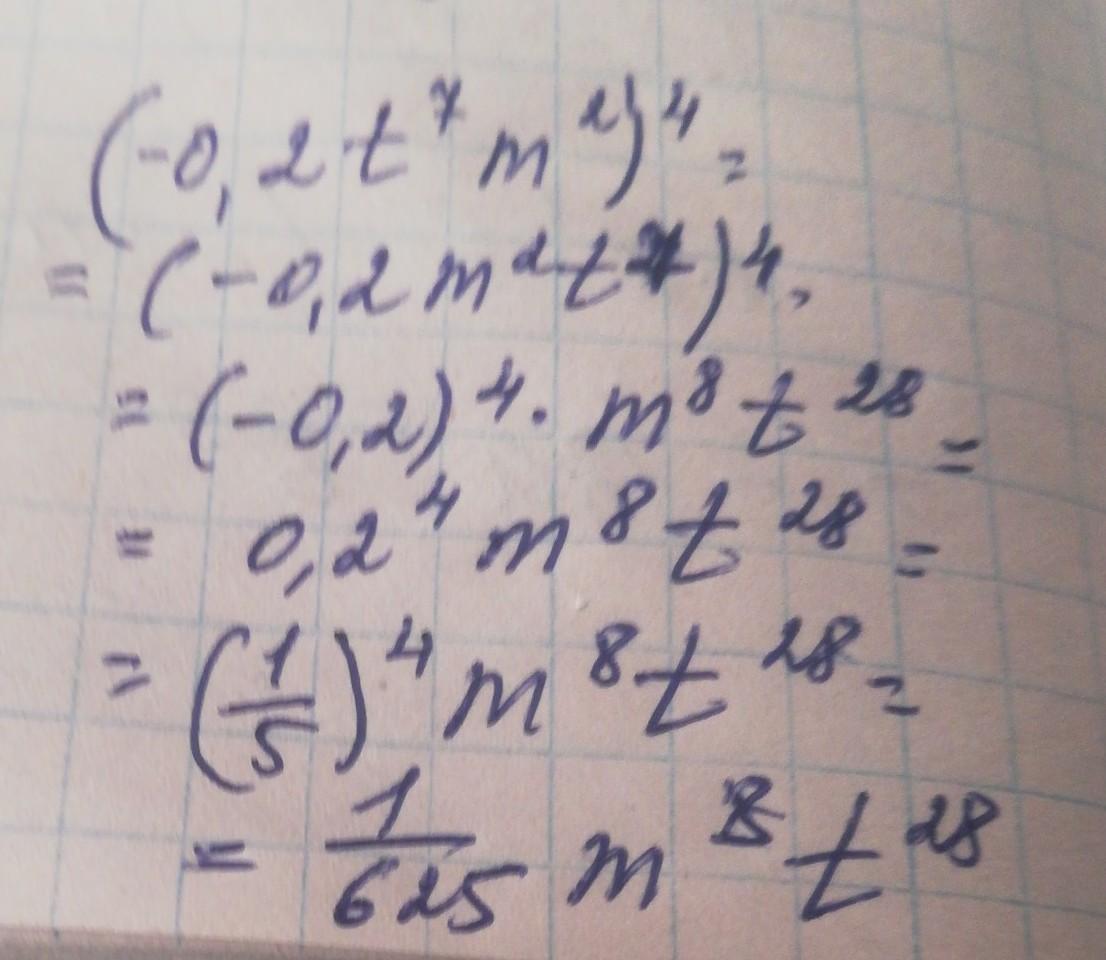 (-0,2 t⁷ m²)⁴ =
= (-0,2 m² t⁷)⁴ =
= (-0,2)⁴ · m⁸ t²⁸ =
= 0,2⁴ m⁸ t²⁸ =
= (1/5)⁴ m⁸ t²⁸ =
= 1/625 m⁸ t²⁸